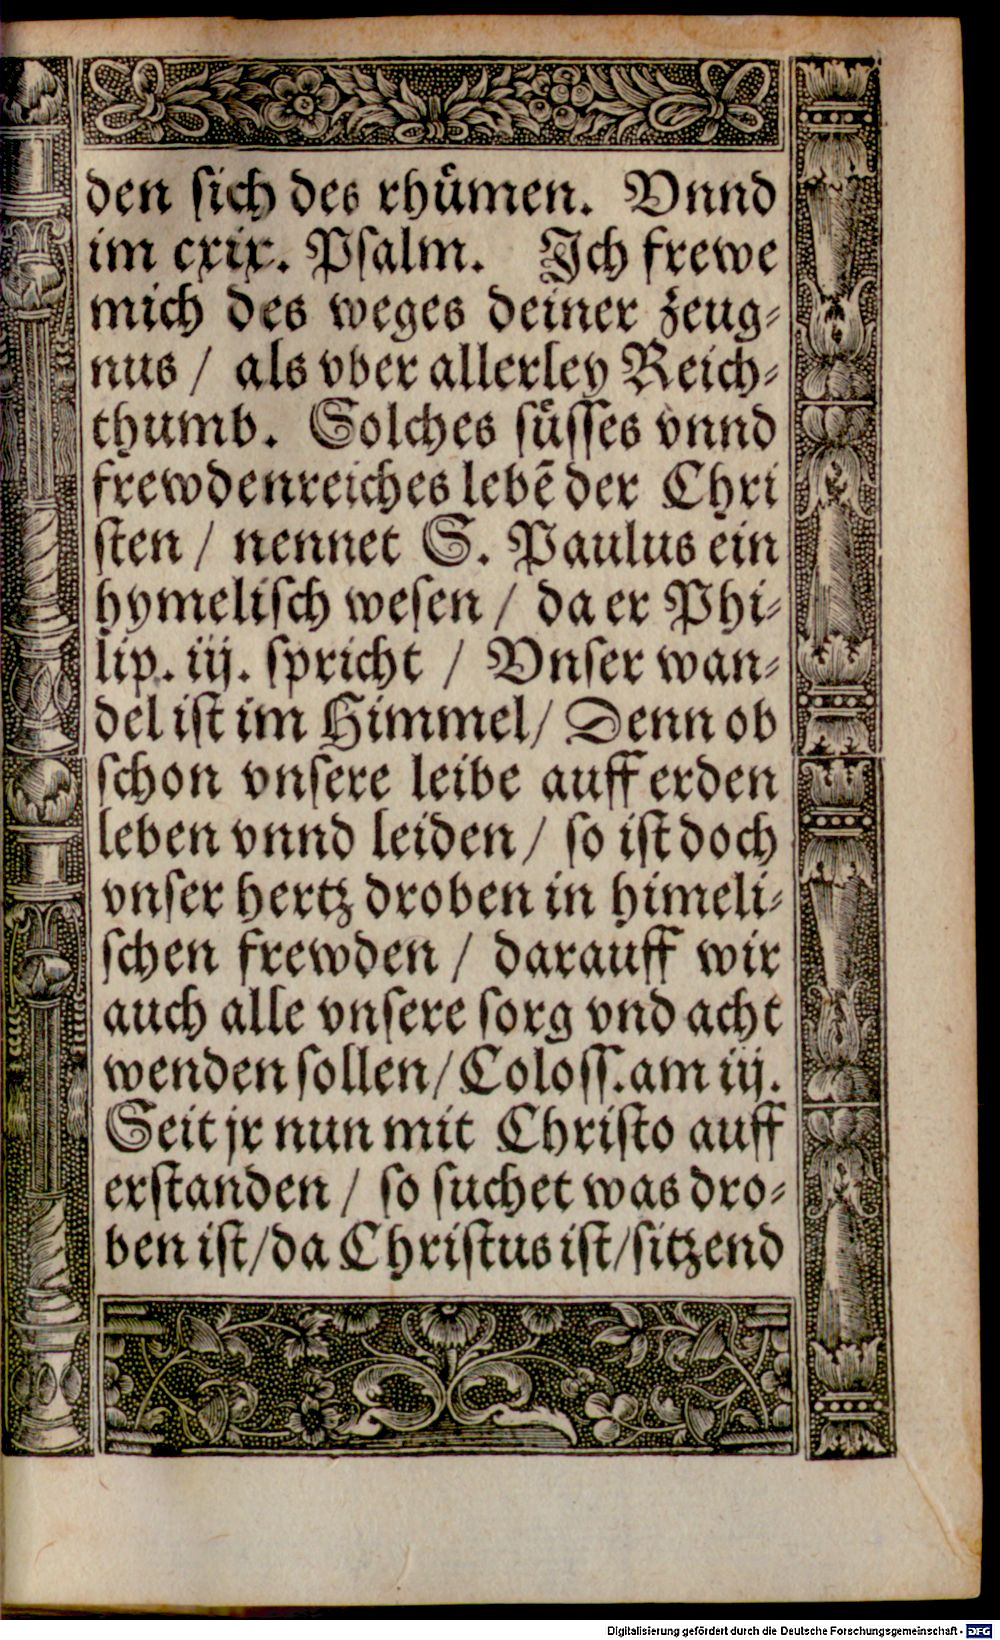 den ſich des rhuͤmen. Vnnd
im cxix. Pſalm. Ich frewe
mich des weges deiner zeug⸗
nus / als vber allerley Reich⸗
thumb. Solches ſuͤſſes vnnd
frewdenreiches lebẽ der Chri
ſten / nennet S. Paulus ein
hymeliſch weſen / da er Phi⸗
lip. iij. ſpricht / Vnſer wan⸗
del iſt im Himmel/ Denn ob
ſchon vnſere leibe auff erden
leben vnnd leiden / ſo iſt doch
vnſer hertz droben in himeli⸗
ſchen frewden / darauff wir
auch alle vnſere ſorg vnd acht
wenden ſollen/ Coloſſ. am iij.
Seit jr nun mit Chriſto auff
erſtanden / ſo ſuchet was dro⸗
ben iſt/da Chriſtus iſt/ſitzend
Digitalisierung gefördert durch die Deutsche Forschungsgemeinschaft - DFG